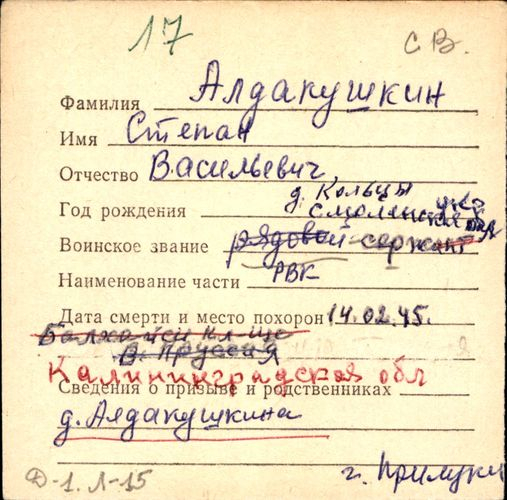 17
С В.
Фамилия Алдакушкин
Имя Степан
Отчество Васильевич
д. Кольцы
Год рождения Смоленская
Воинское звание рядовой сержант
Наименование части РВК
Дата смерти и место похорон 14.02.45.
В. Пруссия
Калининградская обл
Сведения о призыве и родственниках
д. Алдакушкина
Ф-1. Л-15
г. Прилуки